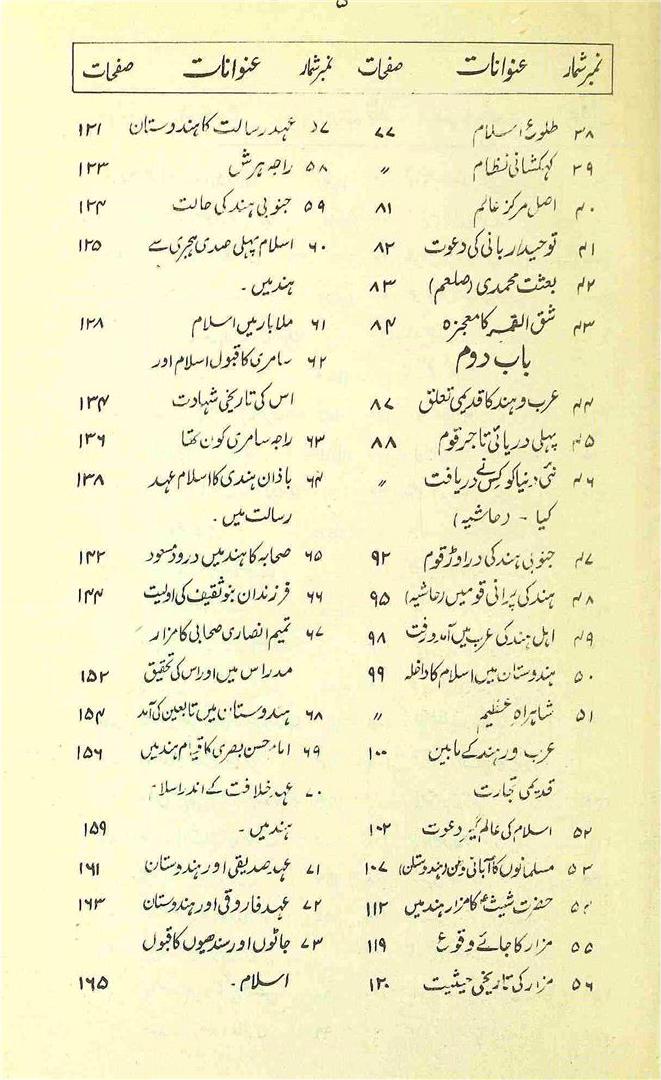 ۵
نمبر شمار عنوانات صفحات نمبر شمار عنوانات صفحات
۳۸ طلوع اسلام ۷۷
۳۹ کہکشانی نظام 〃
۴۰ اصل مرکز عالم ۸۱
۴۱ توحید ربانی کی دعوت ۸۲
۴۲ بعثت محمدی (صلعم) ۸۳
۴۳ شق القمر کا معجزہ ۸۴
باب دوم
۴۴ عرب و ہند کا قدیمی تعلق ۸۷
۴۵ پہلی دریائی تاجر قوم ۸۸
۴۶ نئی دنیا کو کس نے دریافت 〃
کیا - (حاشیہ)
۴۷ جنوبی ہند کی دراوڑ قوم ۹۲
۴۸ ہند کی پرانی قومیں (حاشیہ) ۹۵
۴۹ اہل ہند کی عرب میں آمدورفت ۹۸
۵۰ ہندوستان میں اسلام کا داخلہ ۹۹
۵۱ شاہراہ عظیم 〃
عرب و رہند کے مابین ۱۰۰
قدیمی تجارت
۵۲ اسلام کی عالم گیر دعوت ۱۰۲
۵۳ مسلمانوں کا آبائی وطن (ہندوستان) ۱۰۷
۵۴ حضرت شیثؑ کا مزار ہند میں ۱۱۲
۵۵ مزار کا جائے وقوع ۱۱۹
۵۶ مزار کی تاریخی حیثیت ۱۲۰
۵۷ عہد رسالت کا ہندوستان ۱۲۱
۵۸ راجہ ہرش ۱۲۳
۵۹ جنوبی ہند کی حالت ۱۲۴
۶۰ اسلام پہلی صدی ہجری سے ۱۲۵
ہند میں ۔
۶۱ ملابار میں اسلام ۱۲۸
۶۲ سامری کا قبول اسلام اور
اس کی تاریخی شہادت ۱۳۴
۶۳ راجہ سامری کون تھا ۱۳۶
۶۴ باذان ہندی کا اسلام عہد ۱۳۸
رسالت میں ۔
۶۵ صحابہ کا ہند میں ورود مسعود ۱۴۲
۶۶ فرزندان بنو ثقیف کی اولیت ۱۴۴
۶۷ تمیم انصاری صحابی کا مزار
مدراس میں اور اس کی تحقیق ۱۵۲
۶۸ ہندوستان میں تابعین کی آمد ۱۵۴
۶۹ امام حسن بصری کا قیام ہند میں ۱۵۶
۷۰ عہد خلافت کے اندر اسلام
ہند میں ۔ ۱۵۹
۷۱ عہد صدیقی اور ہندوستان ۱۶۱
۷۲ عہد فاروقی اور ہندوستان ۱۶۳
۷۳ جاٹوں اور سندھیوں کا قبول
اسلام ۔ ۱۶۵